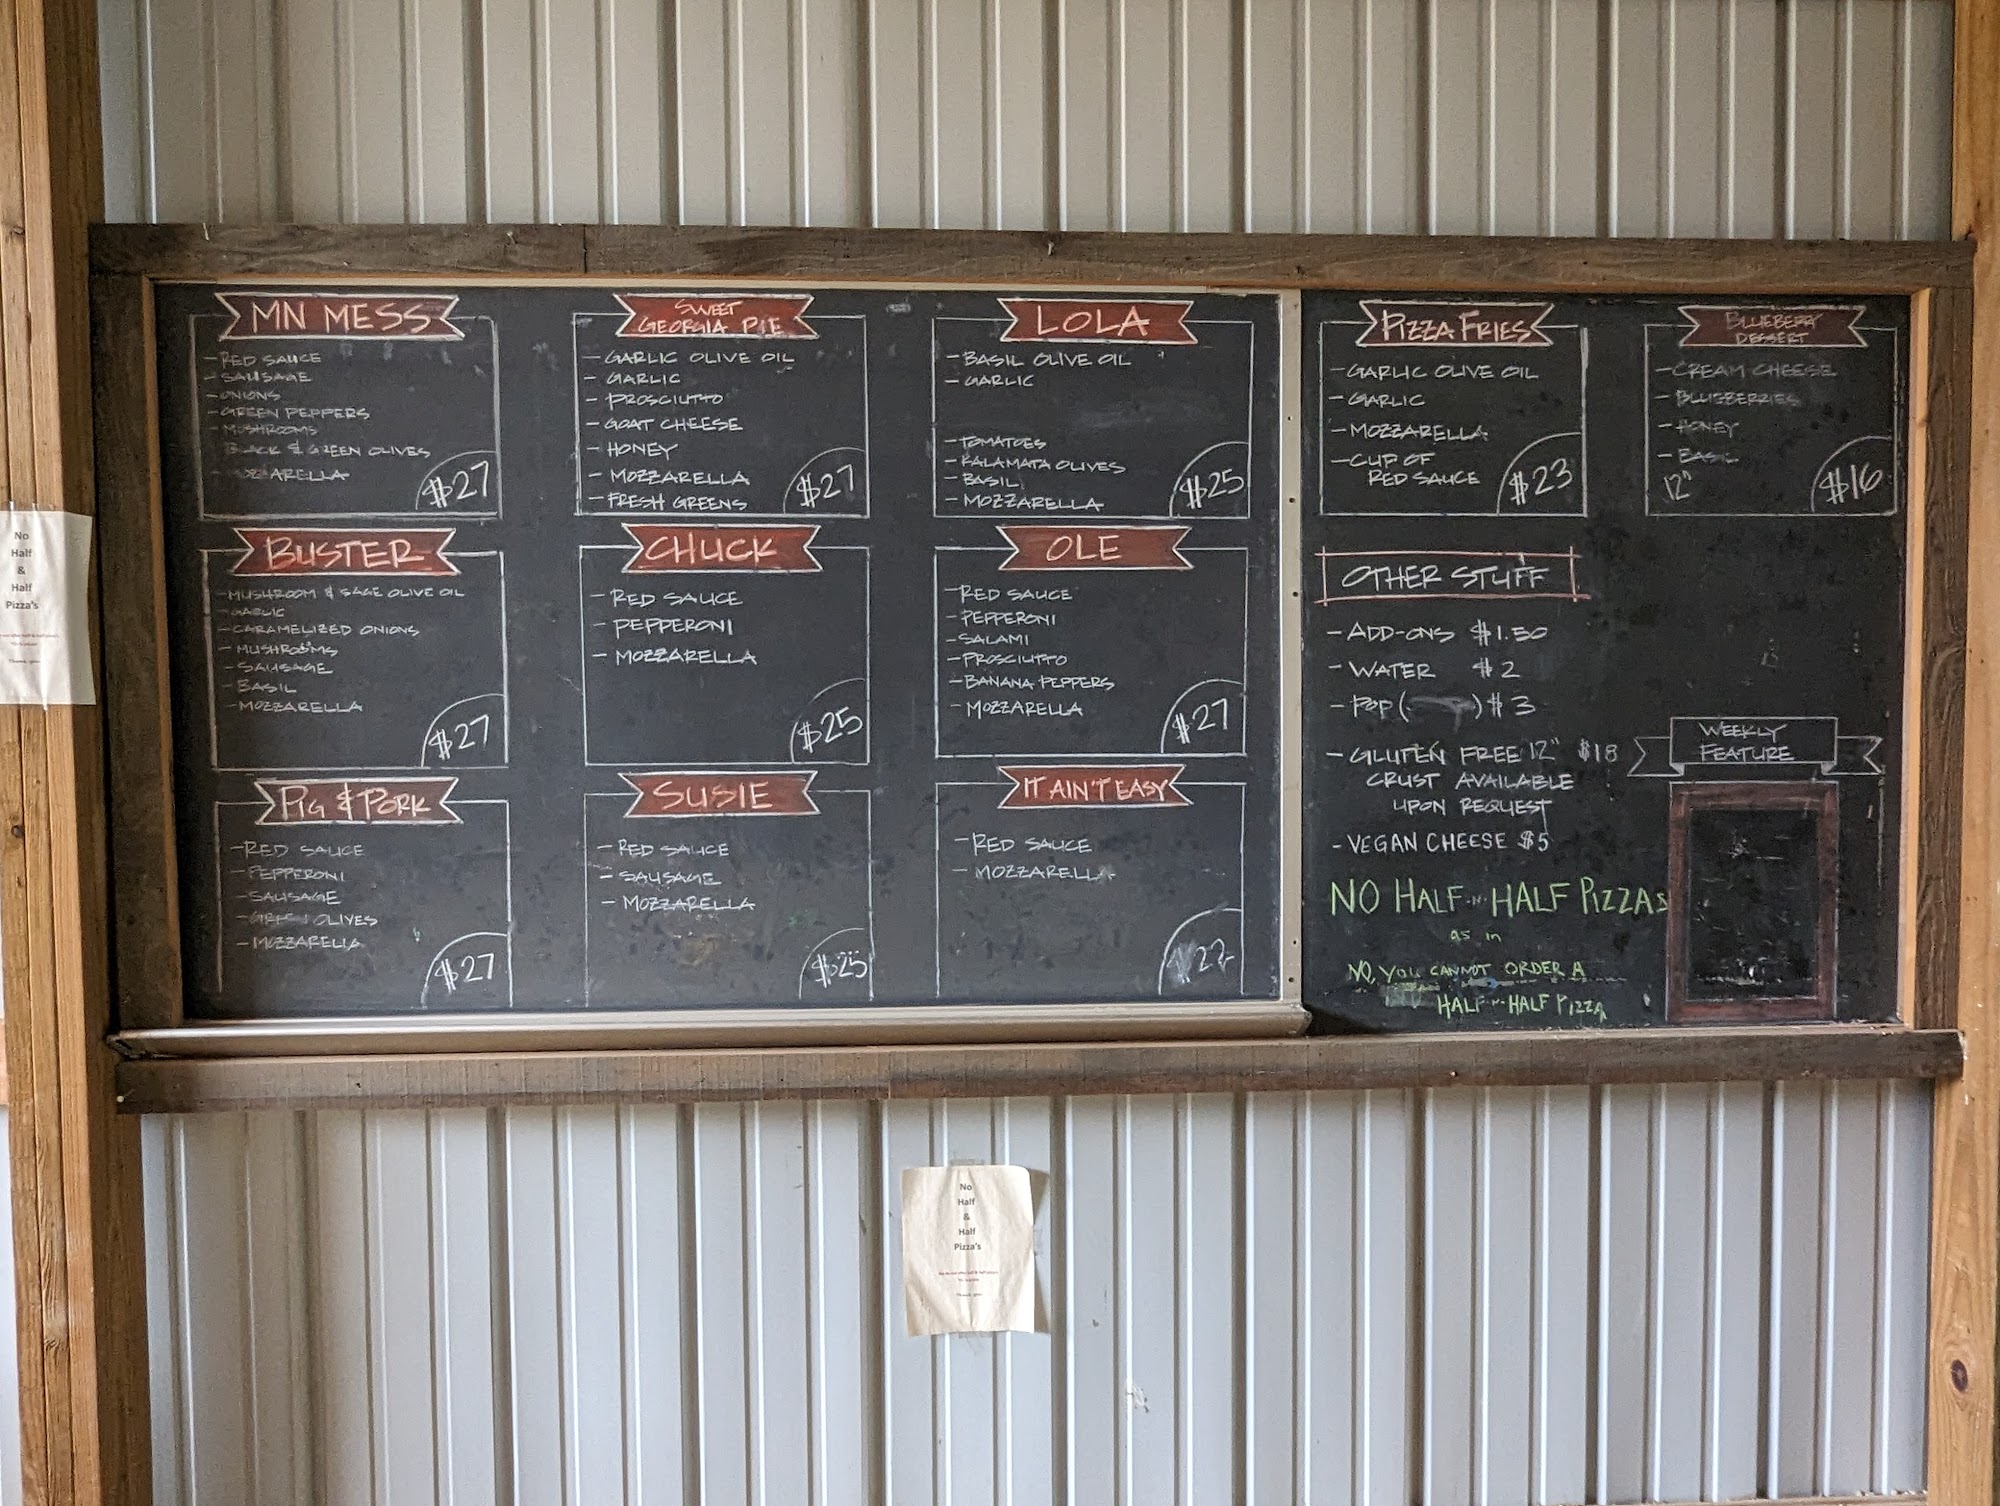 MN MESS
- RED SAUCE
- SAUSAGE
- ONIONS
- GREEN PEPPERS
- MUSHROOMS
BLACK & GREEN OLIVES
- MOZZARELLA
$27
SWEET
GEORGIA PIE
- GARLIC OLIVE OIL
- GARLIC
- PROSCIUTTO
- GOAT CHEESE
- HONEY
- MOZZARELLA
- FRESH GREENS
$27
LOLA
- BASIL OLIVE OIL
- GARLIC
- TOMATOES
- KALAMATA OLIVES
- BASIL
- MOZZARELLA
$25
PIZZA FRIES
- GARLIC OLIVE OIL
- GARLIC
- MOZZARELLA
- CUP OF
RED SAUCE
$23
BLUEBERRY
DESSERT
- CREAM CHEESE
- BLUEBERRIES
- HONEY
- BASIL
12"
$16
BUSTER
- MUSHROOM & SAGE OLIVE OIL
- GARLIC
- CARAMELIZED ONIONS
- MUSHROOMS
- SAUSAGE
- BASIL
- MOZZARELLA
$27
CHUCK
- RED SAUCE
- PEPPERONI
- MOZZARELLA
$25
OLE
- RED SAUCE
- PEPPERONI
- SALAMI
- PROSCIUTTO
- BANANA PEPPERS
- MOZZARELLA
$27
PIG & PORK
- RED SAUCE
- PEPPERONI
- SAUSAGE
- GREEN OLIVES
- MOZZARELLA
$27
SUSIE
- RED SAUCE
- SAUSAGE
- MOZZARELLA
$25
IT AIN'T EASY
- RED SAUCE
- MOZZARELLA
$22
OTHER STUFF
- ADD-ONS $1.50
- WATER $2
- POP ( ) $3
- GLUTEN FREE 12" $18
CRUST AVAILABLE
UPON REQUEST
- VEGAN CHEESE $5
NO HALF-N-HALF PIZZAS
as in
NO, YOU CANNOT ORDER A
HALF-N-HALF PIZZA
WEEKLY
FEATURE
No
Half
&
Half
Pizza's
No
Half
&
Half
Pizza's